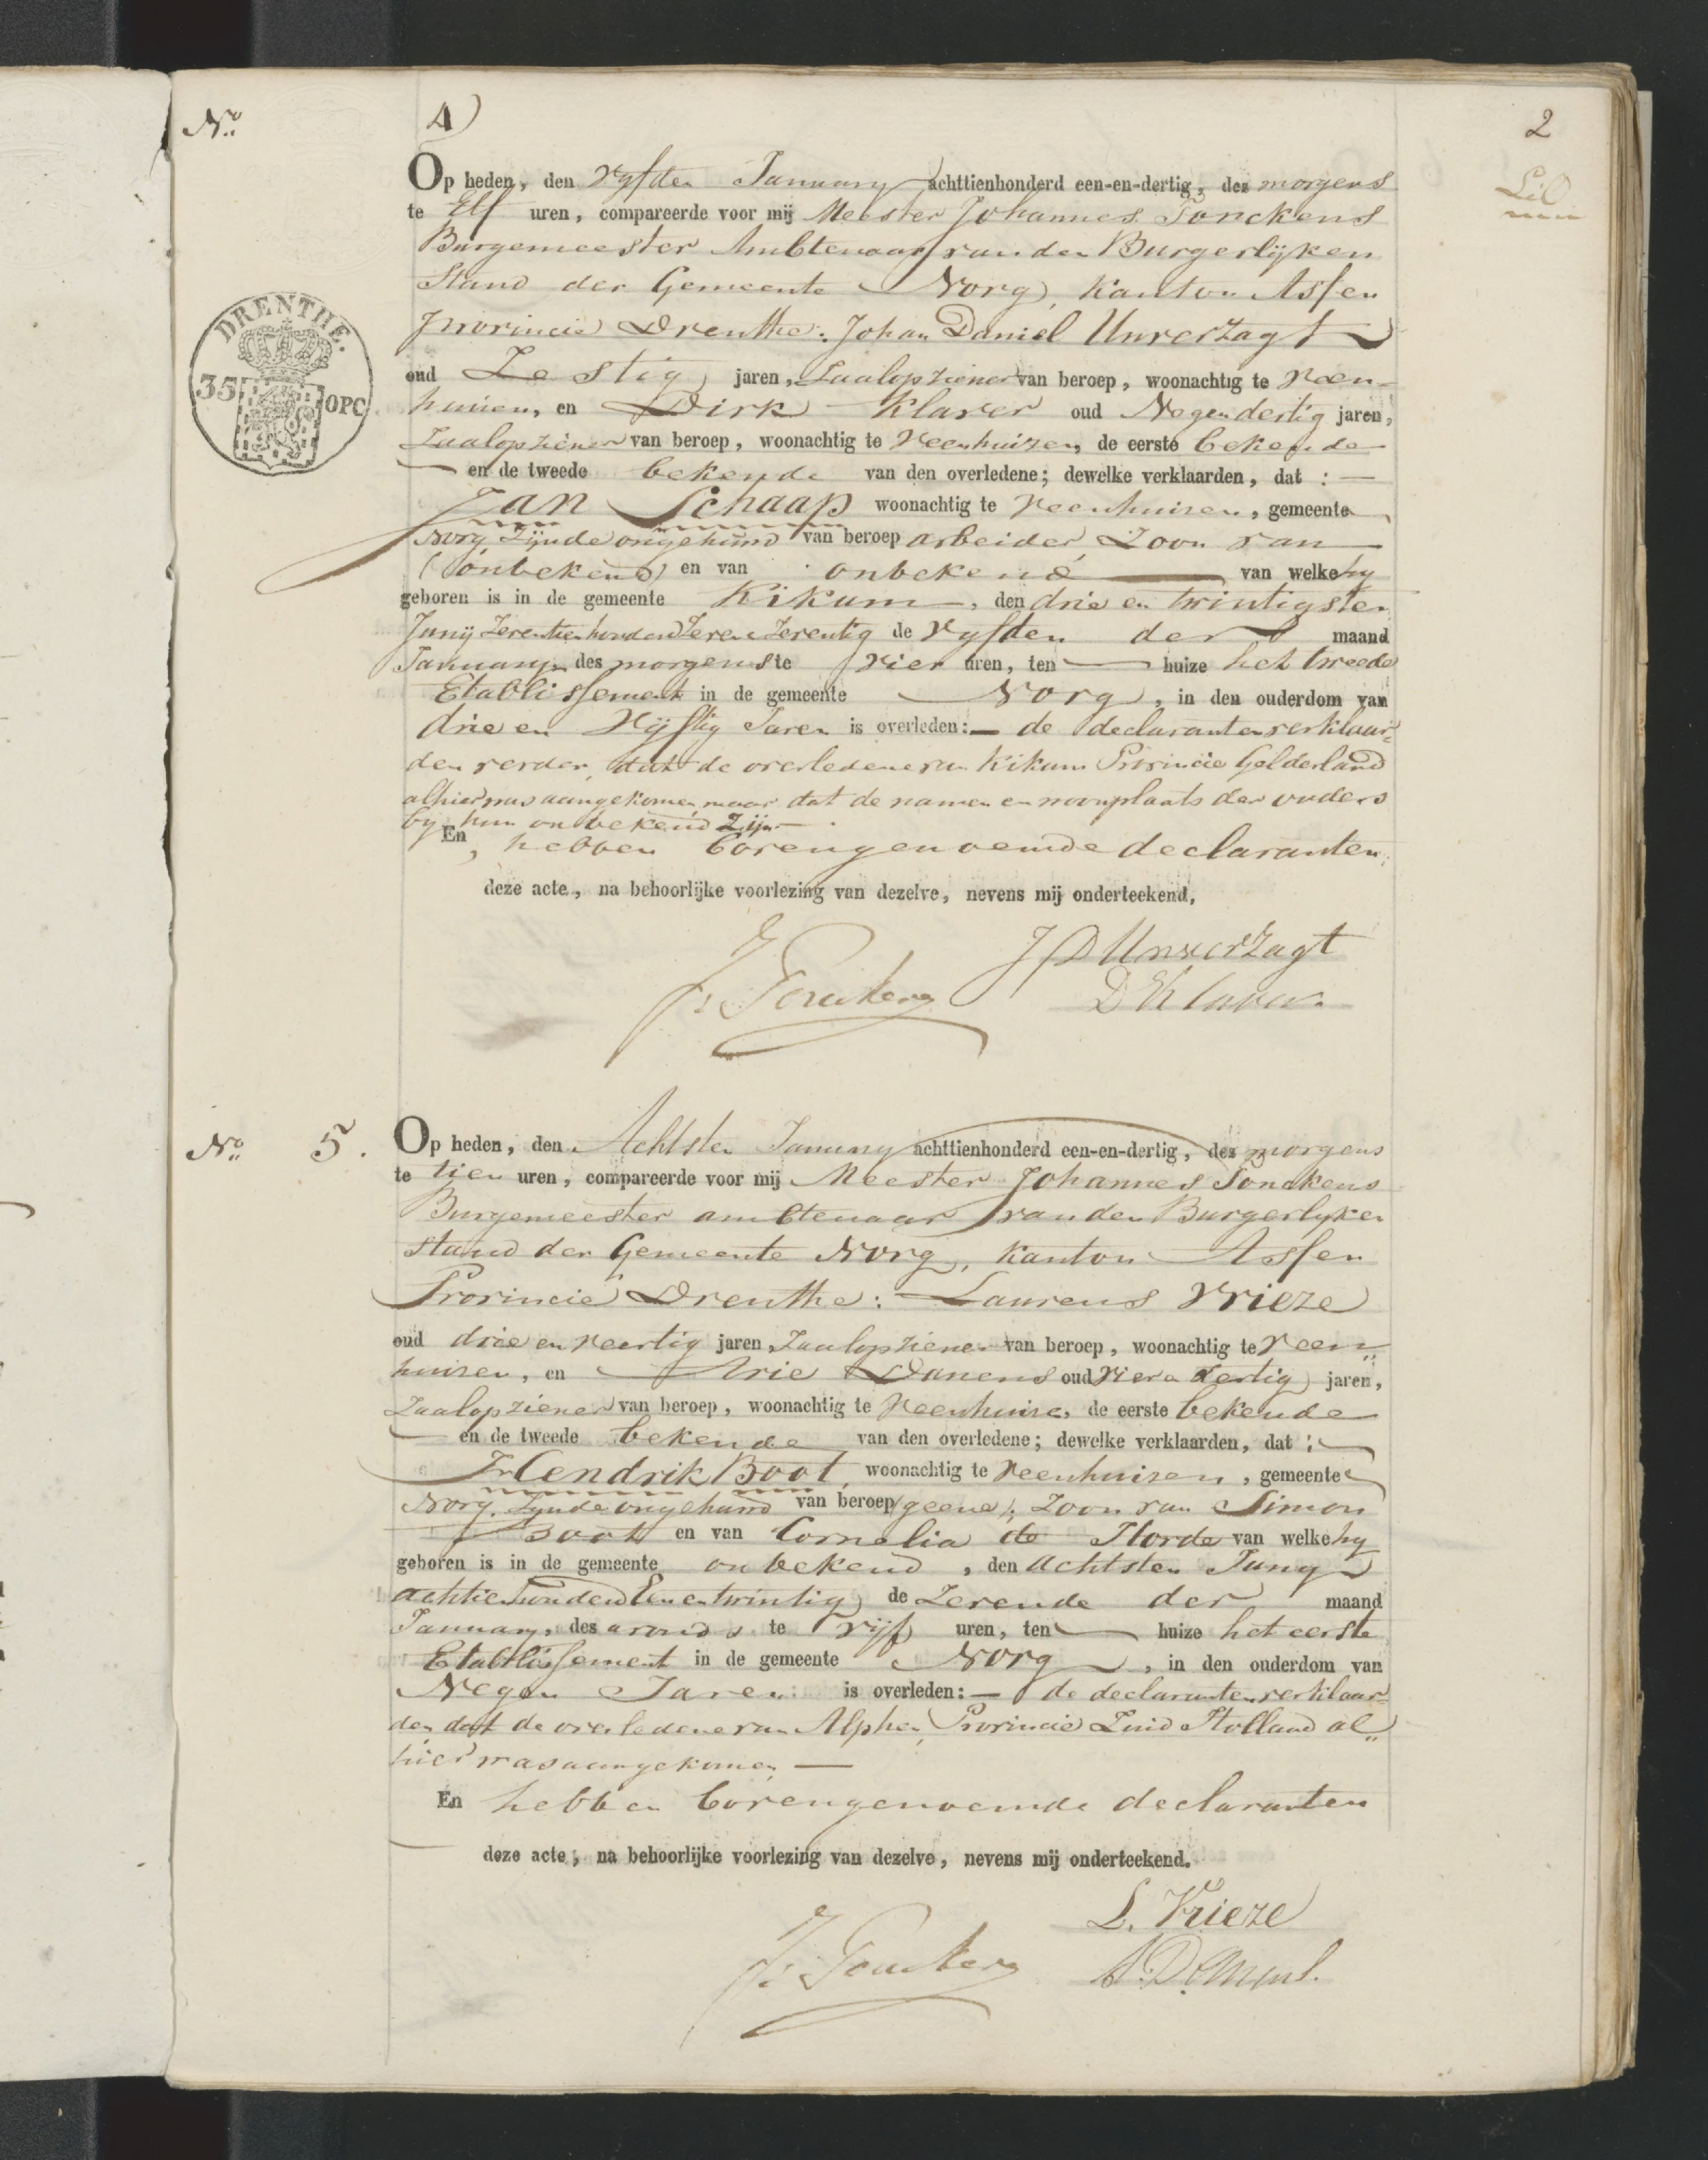 No. 4) 2
Op heden, den vyfden January achttienhonderd een-en-dertig, des morgens
te Elf uren, compareerde voor mij Meester Johannes Tonckens
Burgemeester Ambtenaar van den Burgerlijken
Stand der Gemeente Norg, Kanton Assen
DRENTHE.
35 OPC
provincie Drenthe: Johan Daniel Unverzagt
oud Zestig jaren, Zaalopziener van beroep, woonachtig te Veen-
huisen, en Dirk Klaver oud Negendertig jaren,
Zaalopziener van beroep, woonachtig te Veenhuizen, de eerste bekende
en de tweede bekende van den overledene; dewelke verklaarden, dat:
Jan Schaap woonachtig te Veenhuizen, gemeente
Norg Zijnde ongehuwd van beroep arbeider, Zoon van
(onbekend) en van onbekend van welke hy
geboren is in de gemeente Kikum, den drie en twintigsten
Junij Zeventienhonderd Zeven Zeventig de vyfden der maand
January des morgens te vier uren, ten huize het tweede
Etablissement in de gemeente Norg, in den ouderdom van
drie en Vijftig Jaren is overleden: de declaranten verklaar-
den verder, dat de overledene van Kikum Provincie Gelderland
alhier was aangekomen, maar dat de namen en woonplaats der ouders
by hun onbekend Zijn.
En, hebben bovengenoemde declaranten
deze acte, na behoorlijke voorlezing van dezelve, nevens mij onderteekend,
J D Unverzagt
Js Tonckens
D Klaver.
No. 5. Op heden, den Achtsten January achttienhonderd een-en-dertig, des morgens
te tien uren, compareerde voor mij Meester Johannes Tonckens
Burgemeester ambtenaar van den Burgerlyken
stand der Gemeente Norg, Kanton Assen
Provincie Drenthe: Laurens Vrieze
oud drie en veertig jaren Zaalopziener van beroep, woonachtig te Veen„
huizen, en Arie Danens oud Vier en dertig jaren,
Zaalopziener van beroep, woonachtig te Veenhuizen, de eerste bekende
en de tweede bekende van den overledene; dewelke verklaarden, dat:
Hendrik Boot, woonachtig te Veenhuizen, gemeente
Norg, Zynde ongehuwd van beroep (geene), Zoon van Simon
Boot en van Cornelia de Horde van welke hy
geboren is in de gemeente onbekend, den achtsten Juny
achttienhonderd Een en twintig de Zevende der maand
January, des avonds te vijf uren, ten huize het eerste
Etablissement in de gemeente Norg, in den ouderdom van
Negen Jaren is overleden: de declaranten verklaar-
den dat de overledene van Alphen, Provincie Zuid Holland al„
hier was aangekomen
En hebben bovengenoemde declaranten
deze acte, na behoorlijke voorlezing van dezelve, nevens mij onderteekend.
L. Vrieze
Js Tonckens